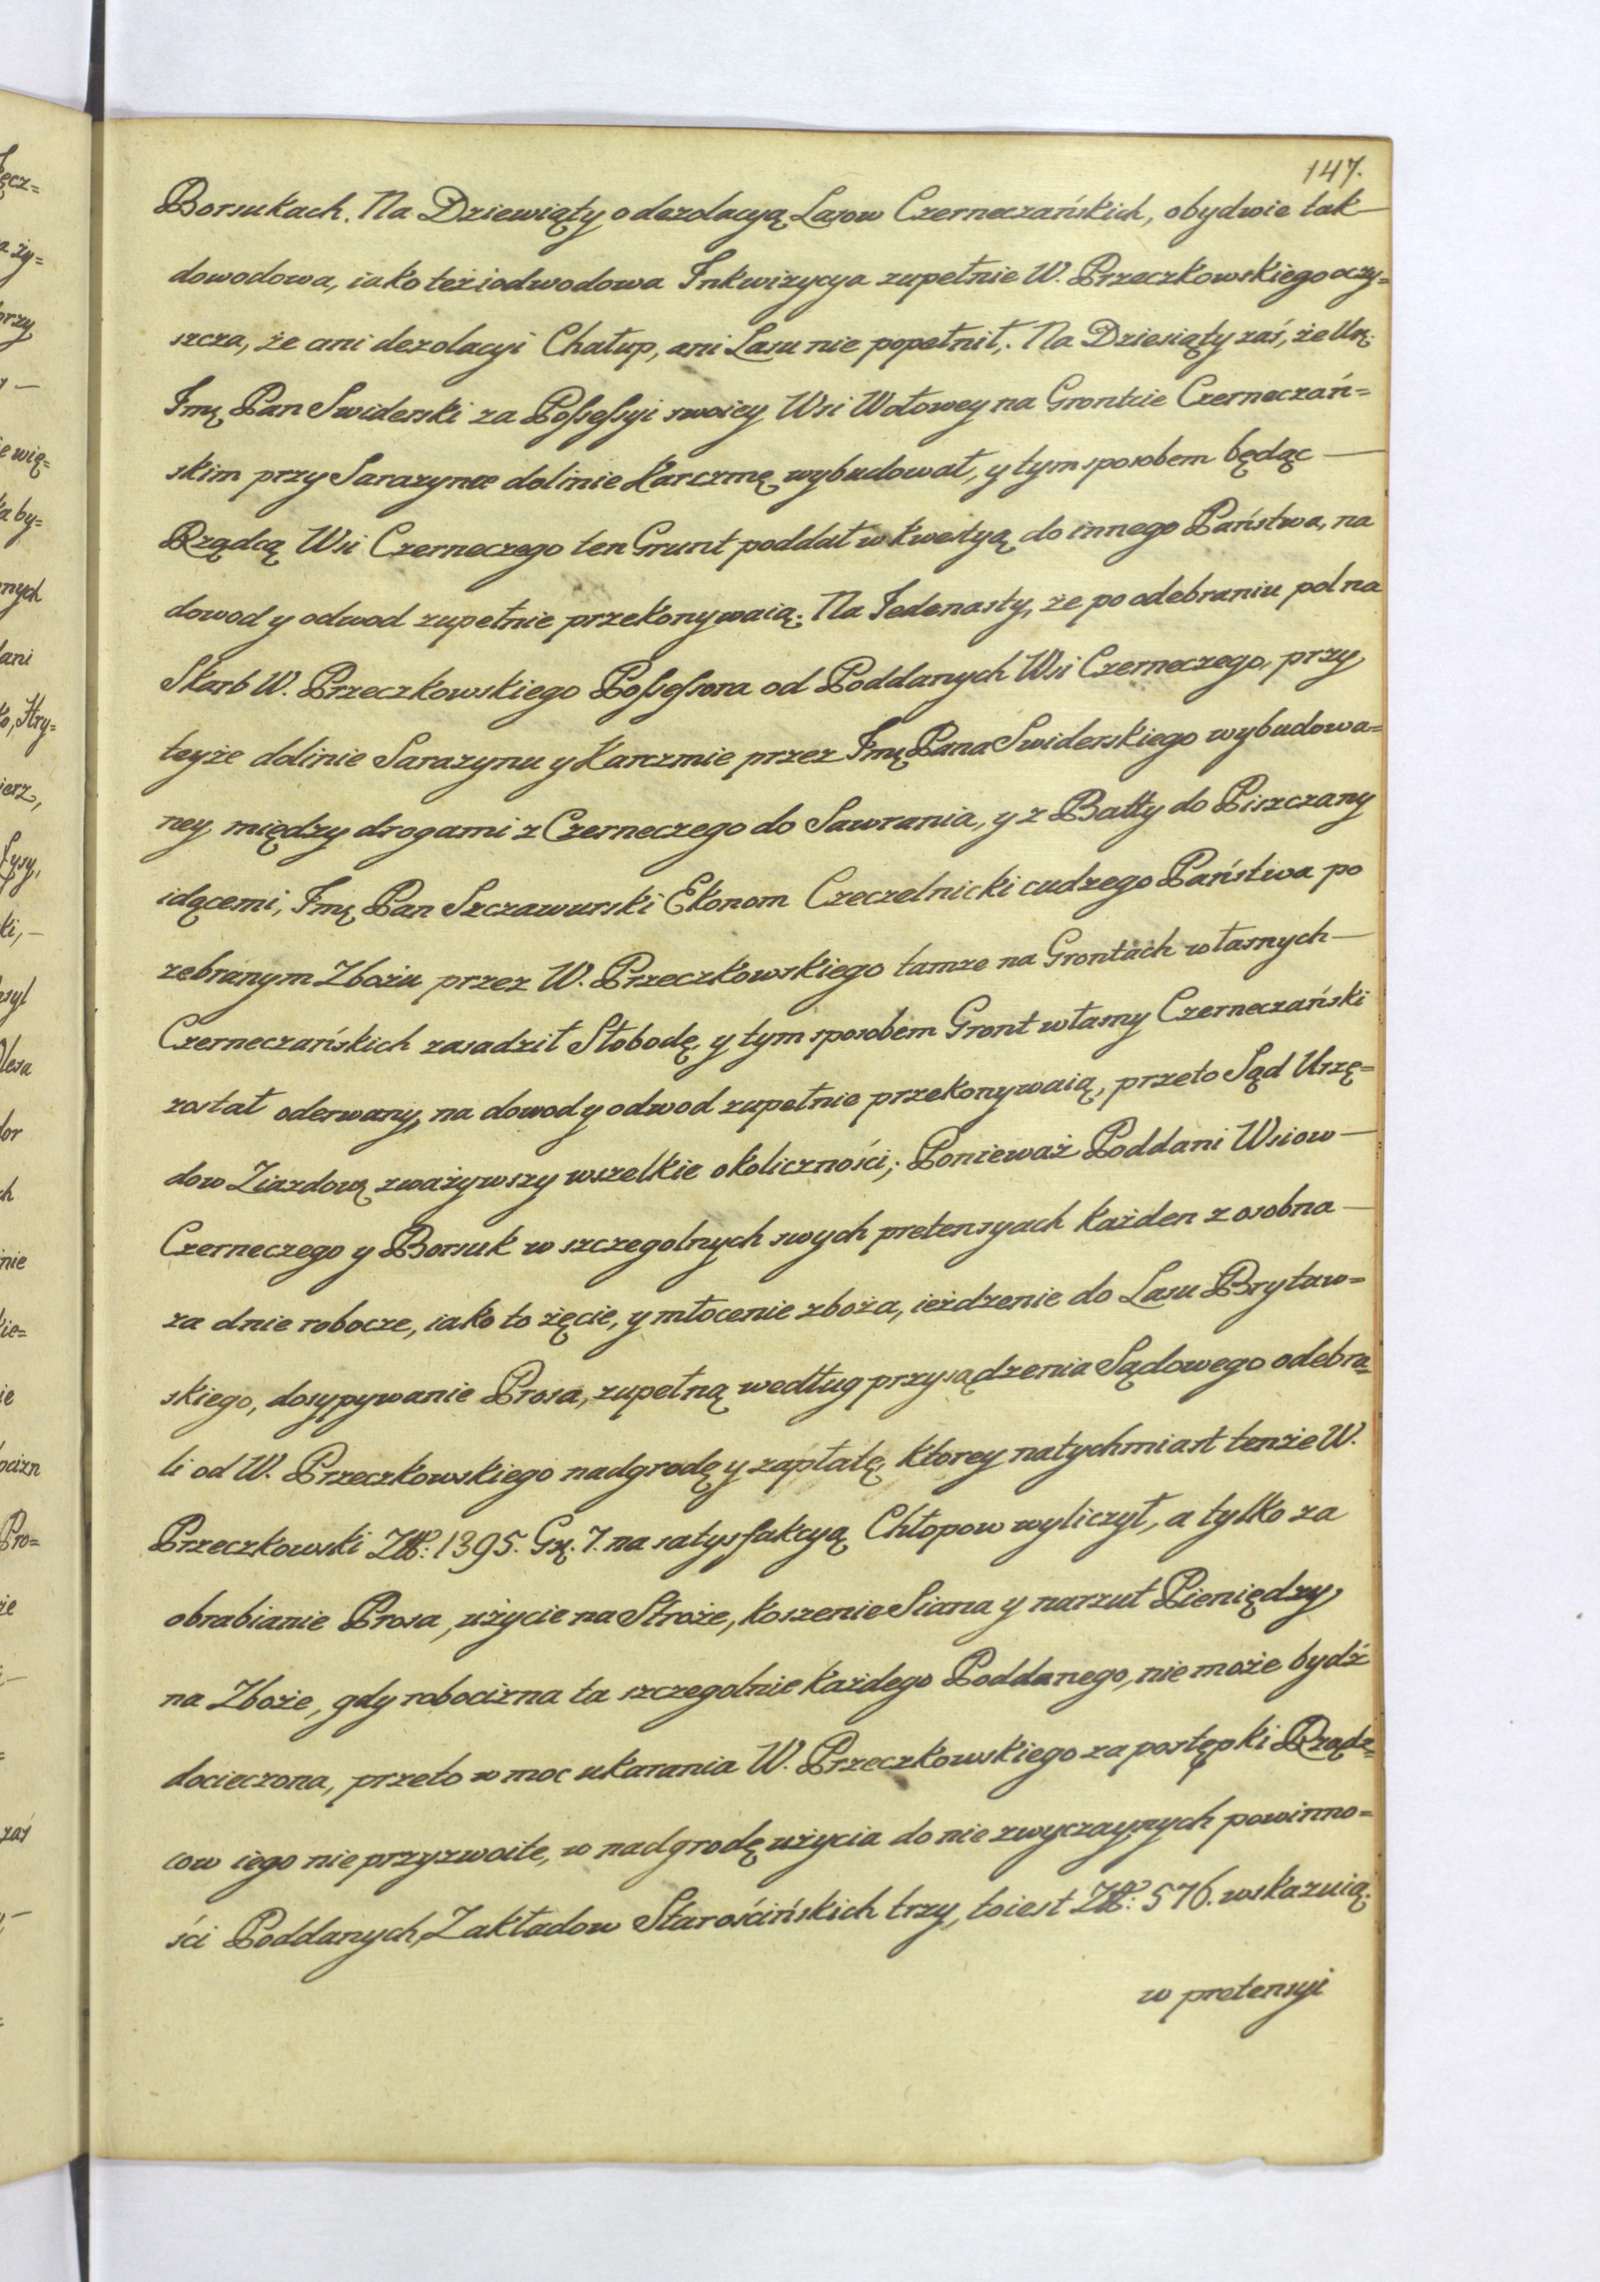 147.
Borsukach. Na Dziewiąty o dezolacyą Lasow Czerneczańskich, obydwie tak —
dowodowa, iako też i odwodowa Inkwizycya zupełnie W. Przeczkowskiego oczy=
szcza, że ani dezolacyi Chałup, ani Lasu nie popełnił. Na Dziesiąty zaś, że Ur.
Imę Pan Swiderski za Possessyi swoiey Wsi Wołowey na Gronticie Czerneczań=
skim przy Sarazynce dolinie Karczmę wybudował, y tym sposobem będąc —
Rządcą Wsi Czerneczego ten Grunt poddał w kwestyą do innego Państwa, na
dowod y odwod zupełnie przekonywaią. Na Jedenasty, że po odebraniu pol na
Skarb W. Przeczkowskiego Possessora od Poddanych Wsi Czerneczego, przy
teyże dolinie Sarazynu y Karczmie przez Imę Pana Swiderskiego wybudowa=
ney między drogami z Czerneczego do Sawrania, y z Bałty do Piszczany
idącemi, Imę Pan Szczawurski Ekonom Czeczelnicki cudzego Państwa po
zebranym Zbożu przez W. Przeczkowskiego tamże na Grontach własnych —
Czerneczańskich zasadził Słobodę, y tym sposobem Gront własny Czerneczański
został oderwany, na dowod y odwod zupełnie przekonywaią, przeto Sąd Urzę=
dow Ziazdowy zważywszy wszelkie okoliczności; Ponieważ Poddani Wsiow —
Czerneczego y Borsuk w szczegolnych swych pretensyach każden z osobna —
za dnie robocze, iako to zęcie, y młocenie zboża, ieżdzenie do Lasu Brytaw=
skiego, dosypywanie Prosa, zupełną według przysądzenia Sądowego odebra=
li od W. Przeczkowskiego nadgrodę y zapłatę, ktorey natychmiast tenże W.
Przeczkowski Zł: 1395. Gr. 7. na satysfakcyą Chłopow wyliczył, a tylko za
obrabianie Prosa, użycie na Stroże, koszenie Siana y narzut Pieniędzy
na Zboże, gdy robocizna ta szczegolnie każdego Poddanego, nie może bydź
docieczona, przeto w moc ukarania W. Przeczkowskiego za postępki Rządz=
cow iego nieprzyzwoite, w nadgrodę użycia do nie zwyczaynych powinno=
ści Poddanych, Zakładow Starościńskich trzy, to iest Zł: 576. wskazuią.
w pretensyi